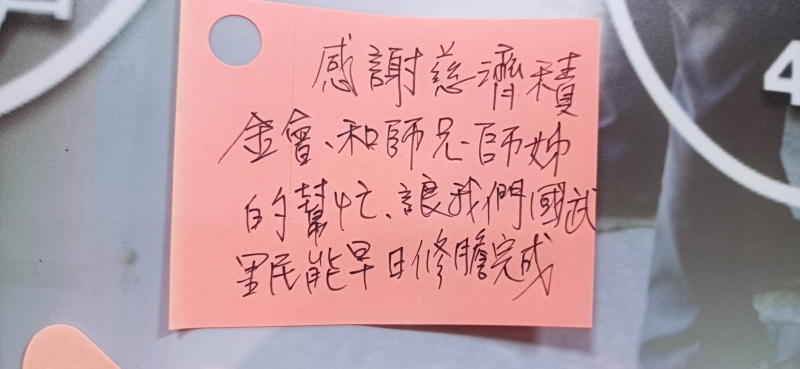 感謝慈濟積
金會、和師兄.師姊
的幫忙、讓我們國武
里民能早日修膽完成
4